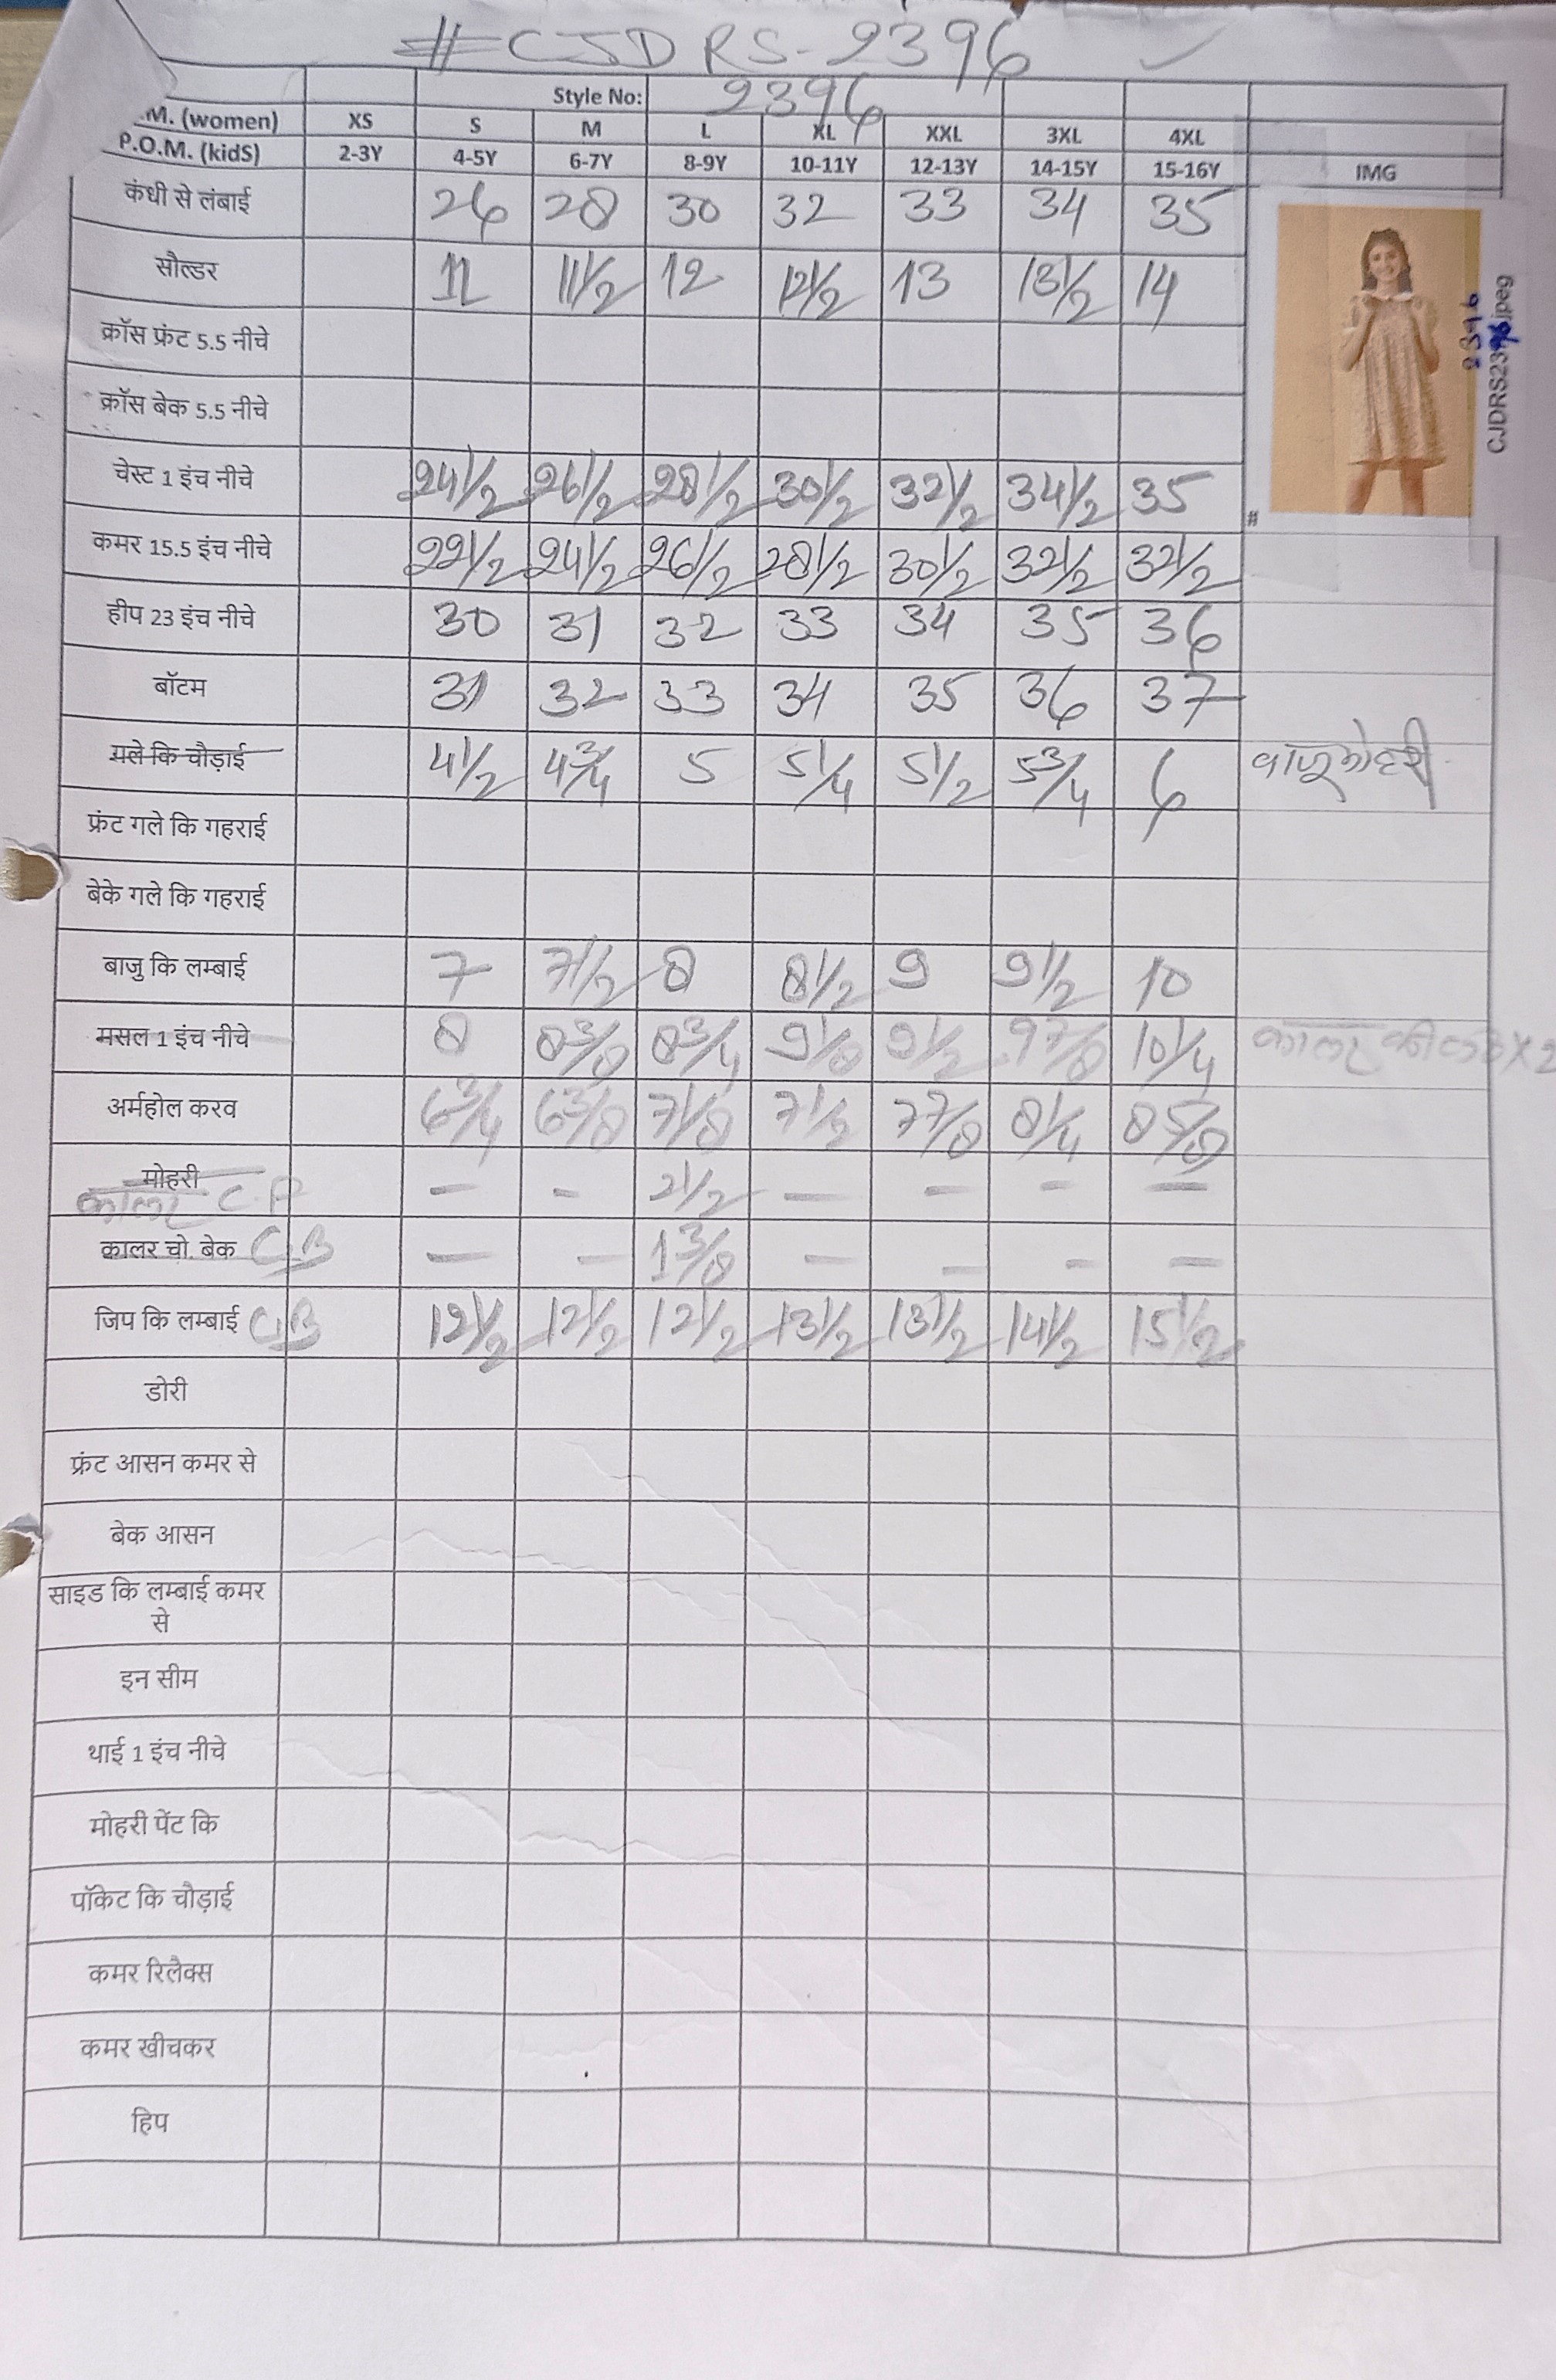 # CJDRS-2396
Style No: 2396
.M. (women) XS S M L XL XXL 3XL 4XL
P.O.M. (kidS) 2-3Y 4-5Y 6-7Y 8-9Y 10-11Y 12-13Y 14-15Y 15-16Y IMG
कंधी से लंबाई 26 28 30 32 33 34 35
सौल्डर 11 11 1/2 12 12 1/2 13 13 1/2 14
क्रॉस फ्रंट 5.5 नीचे
क्रॉस बेक 5.5 नीचे
2396
CJDRS2396.jpeg
#
चेस्ट 1 इंच नीचे 24 1/2 26 1/2 28 1/2 30 1/2 32 1/2 34 1/2 35
कमर 15.5 इंच नीचे 22 1/2 24 1/2 26 1/2 28 1/2 30 1/2 32 1/2 32 1/2
हीप 23 इंच नीचे 30 31 32 33 34 35 36
बॉटम 31 32 33 34 35 36 37
गले कि चौड़ाई 4 1/2 4 3/4 5 5 1/4 5 1/2 5 3/4 6 बाजू मोहरी
फ्रंट गले कि गहराई
बेके गले कि गहराई
बाजु कि लम्बाई 7 7 1/2 8 8 1/2 9 9 1/2 10
मसल 1 इंच नीचे 8 8 3/8 8 3/4 9 1/8 9 1/2 9 7/8 10 1/4 कालर की x2
अर्महोल करव 6 3/4 6 3/8 7 1/8 7 1/2 7 7/8 8 1/4 8 5/8
मोहरी
कालर C.F - - 2 1/2 - - - -
कालर चो. बेक C.B - - 1 3/8 - - - -
जिप कि लम्बाई C.B 12 1/2 12 1/2 12 1/2 13 1/2 13 1/2 14 1/2 15 1/2
डोरी
फ्रंट आसन कमर से
बेक आसन
साइड कि लम्बाई कमर
से
इन सीम
थाई 1 इंच नीचे
मोहरी पेंट कि
पॉकेट कि चौड़ाई
कमर रिलैक्स
कमर खीचकर
हिप